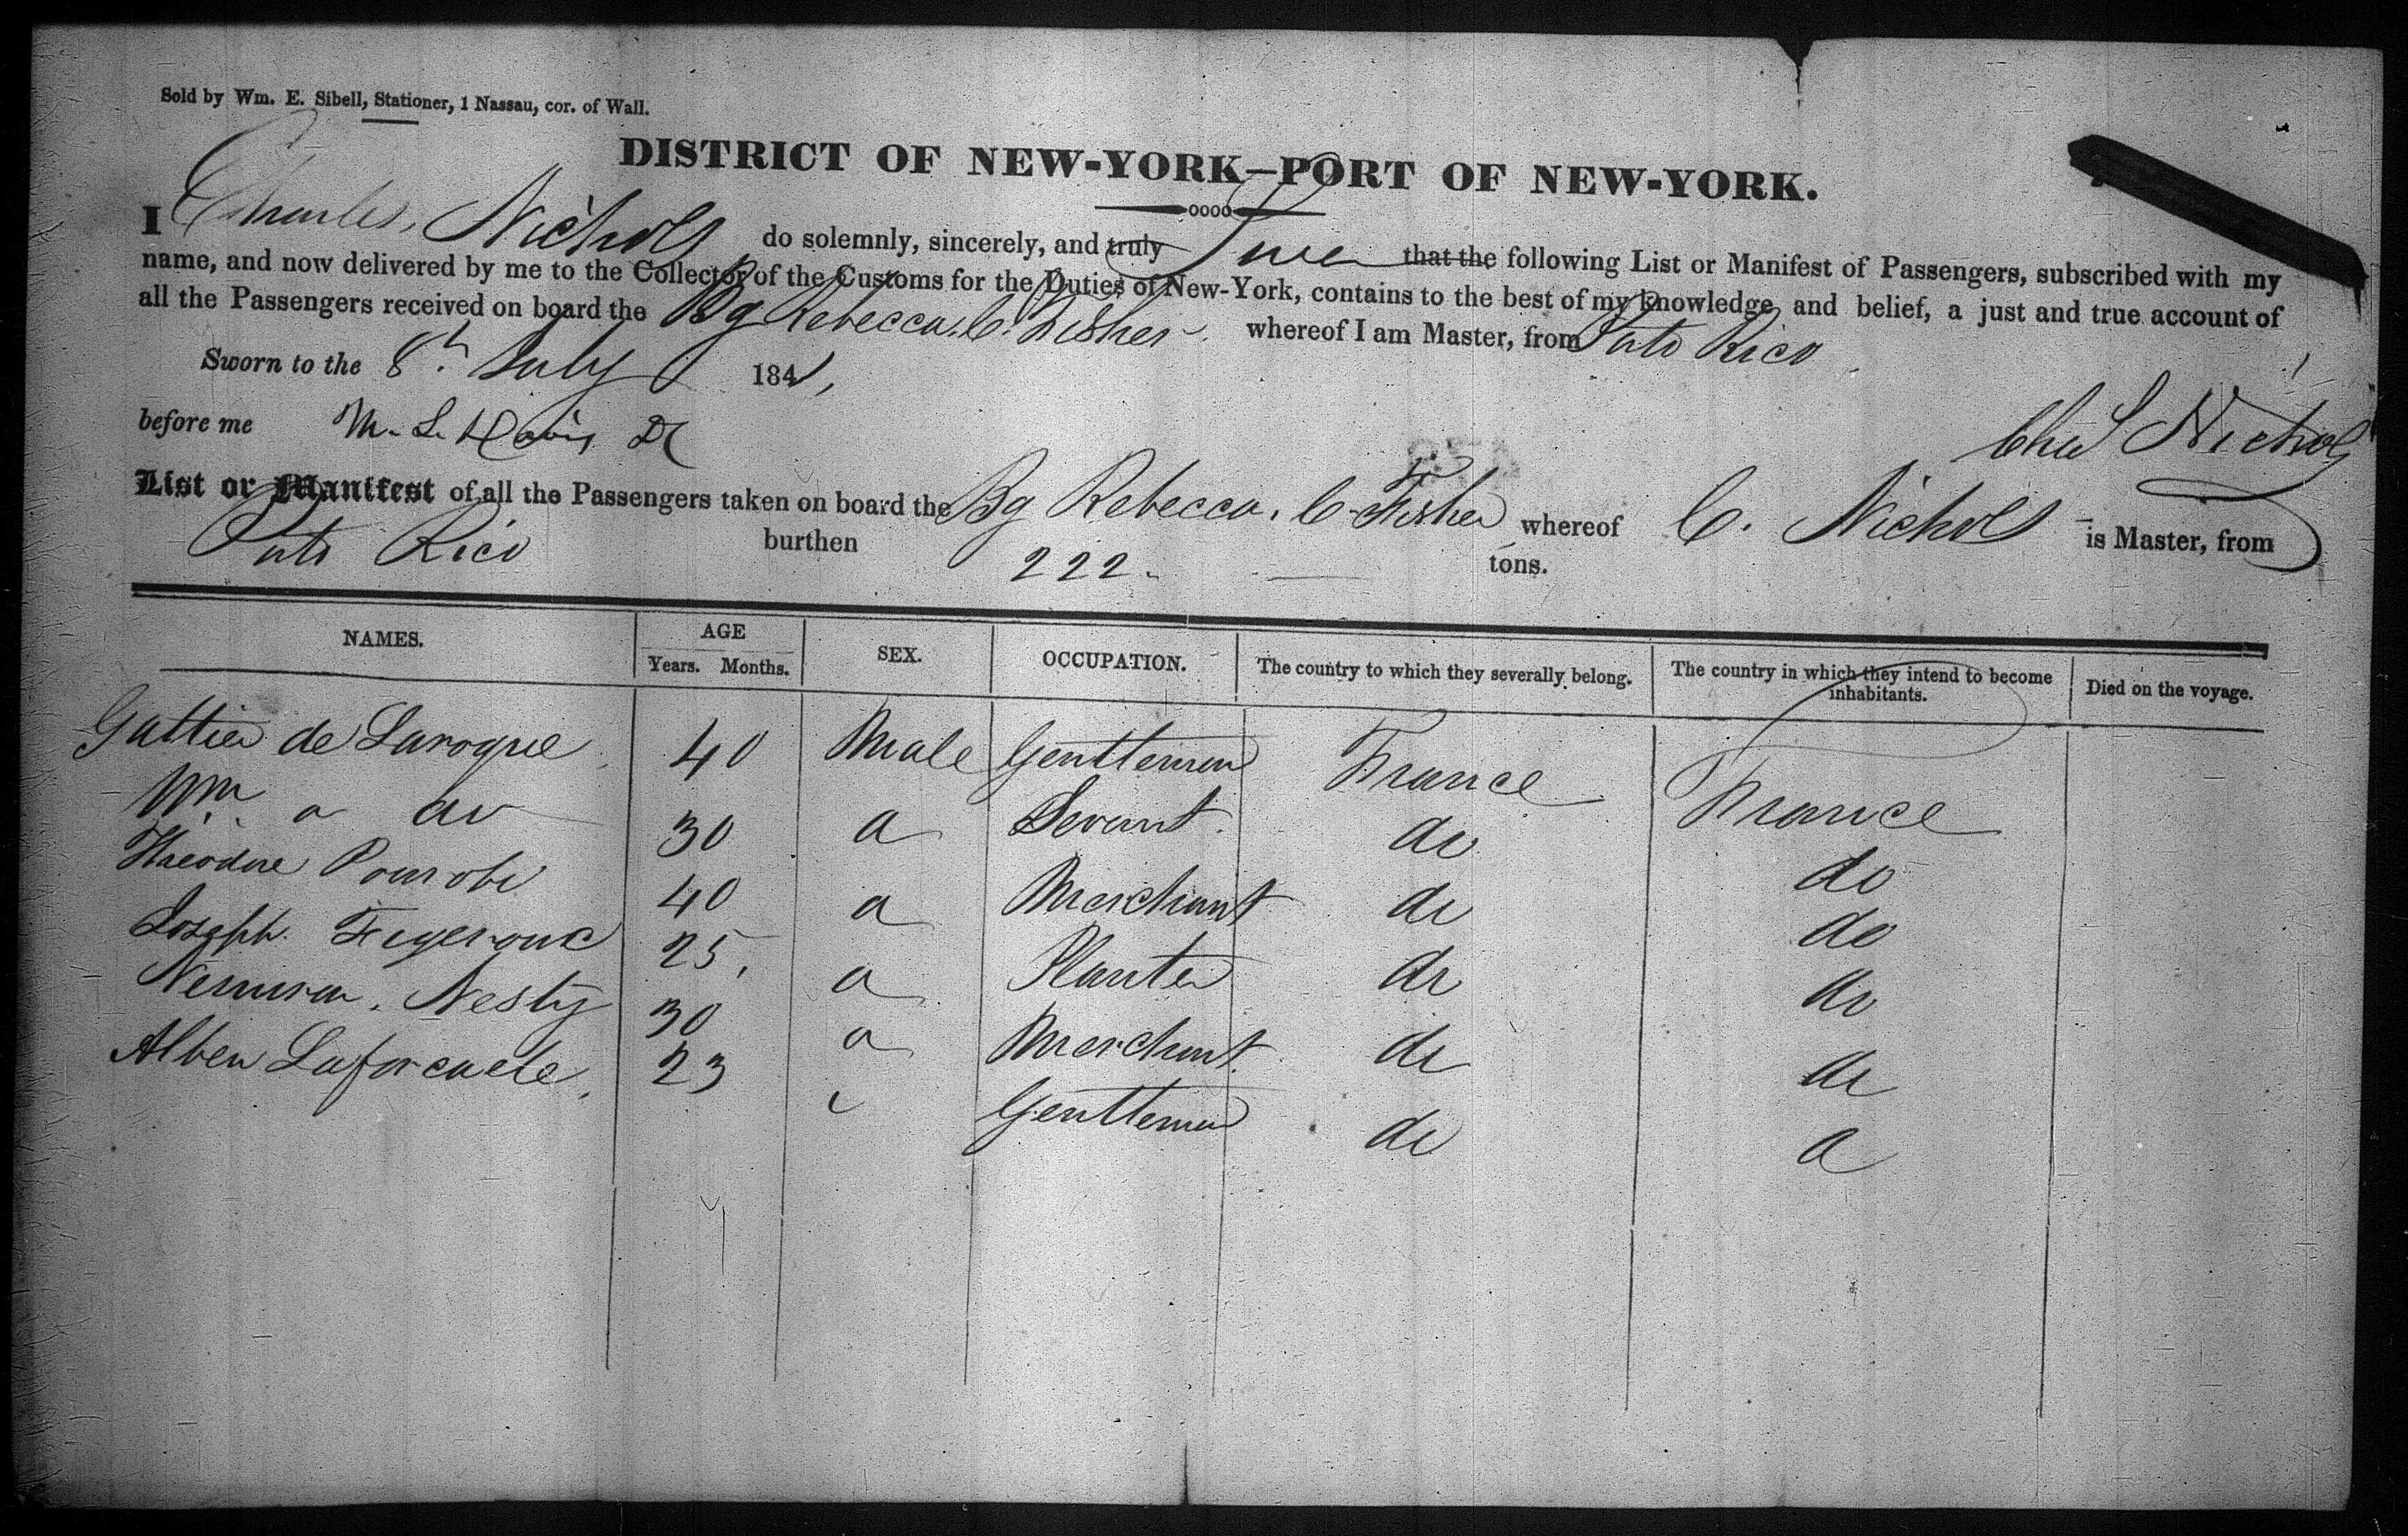 Sold by Wm. E. Sibell, Stationer, 1 Nassau, cor. of Wall.
DISTRICT OF NEW-YORK—PORT OF NEW-YORK.
I Charles Nichols do solemnly, sincerely, and truly Swear that the following List or Manifest of Passengers, subscribed with my
name, and now delivered by me to the Collector of the Customs for the Duties of New-York, contains to the best of my knowledge and belief, a just and true account of
all the Passengers received on board the Bg Rebecca C. Fisher whereof I am Master, from Puto Rico
Sworn to the 8th July 1841,
before me M. L. Davis
Chas Nichols
List or Manifest of all the Passengers taken on board the Bg Rebecca. C. Fisher whereof C. Nichols is Master, from
Puto Rico burthen 222 tons.
NAMES. AGE Years. Months. SEX. OCCUPATION. The country to which they severally belong. The country in which they intend to become inhabitants. Died on the voyage.
de Laroque 40 Male Gentleman France France
Wm 30 Servant do do
Theodore 40 Merchant do do
Joseph 25, Planter do do
Nesty 30 Merchant do do
23 Gentleman do